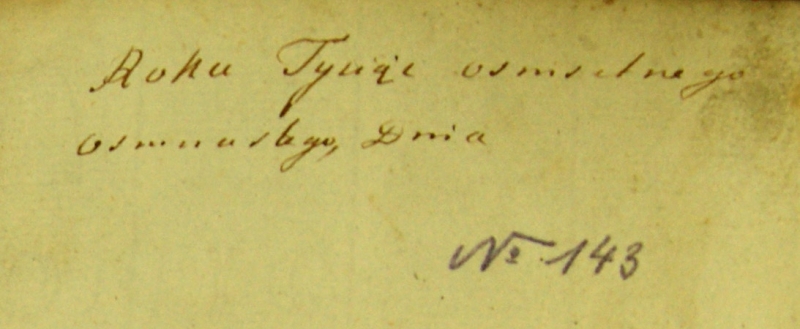 Roku Tysiąc osmsetnego
osmnastego, Dnia
№ 143